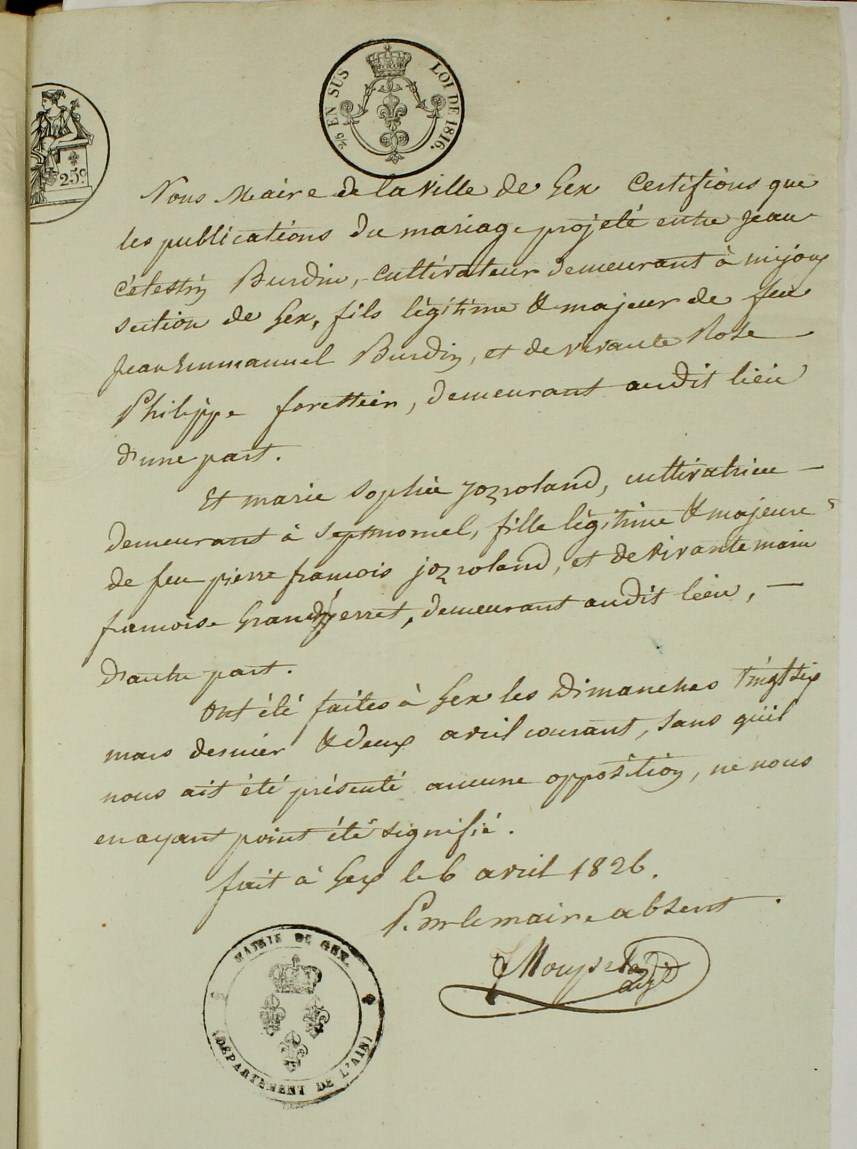 2/5 EN SUS LOI DE 1816.
25c
Nous Maire de la ville de Gex Certifions que
les publications du mariage projeté entre Jean
Célestin Burdin, cultivateur demeurant à mijoux
section de Gex, fils légitime & majeur de feu
Jean Emmanuel Burdin, et de vivante Rose
Philippe forestier, demeurant audit lieu
d'une part.
Et marie Sophie jozroland, cultivatrice —
demeurant à Septmoncel, fille légitime & majeure
de feu pierre francois jozroland, et de vivante marie
francoise Grandperret, demeurant audit lieu, —
d'autre part.
Ont été faites à Gex les Dimanches vingt six
mars dernier & deux avril courant, sans qu'il
nous ait été présenté aucune opposition, ne nous
en ayant point été signifié.
fait à Gex le 6 avril 1826.
P. mr le maire absent.
adjt
MAIRIE DE GEX.
(DÉPARTEMENT DE L'AIN)